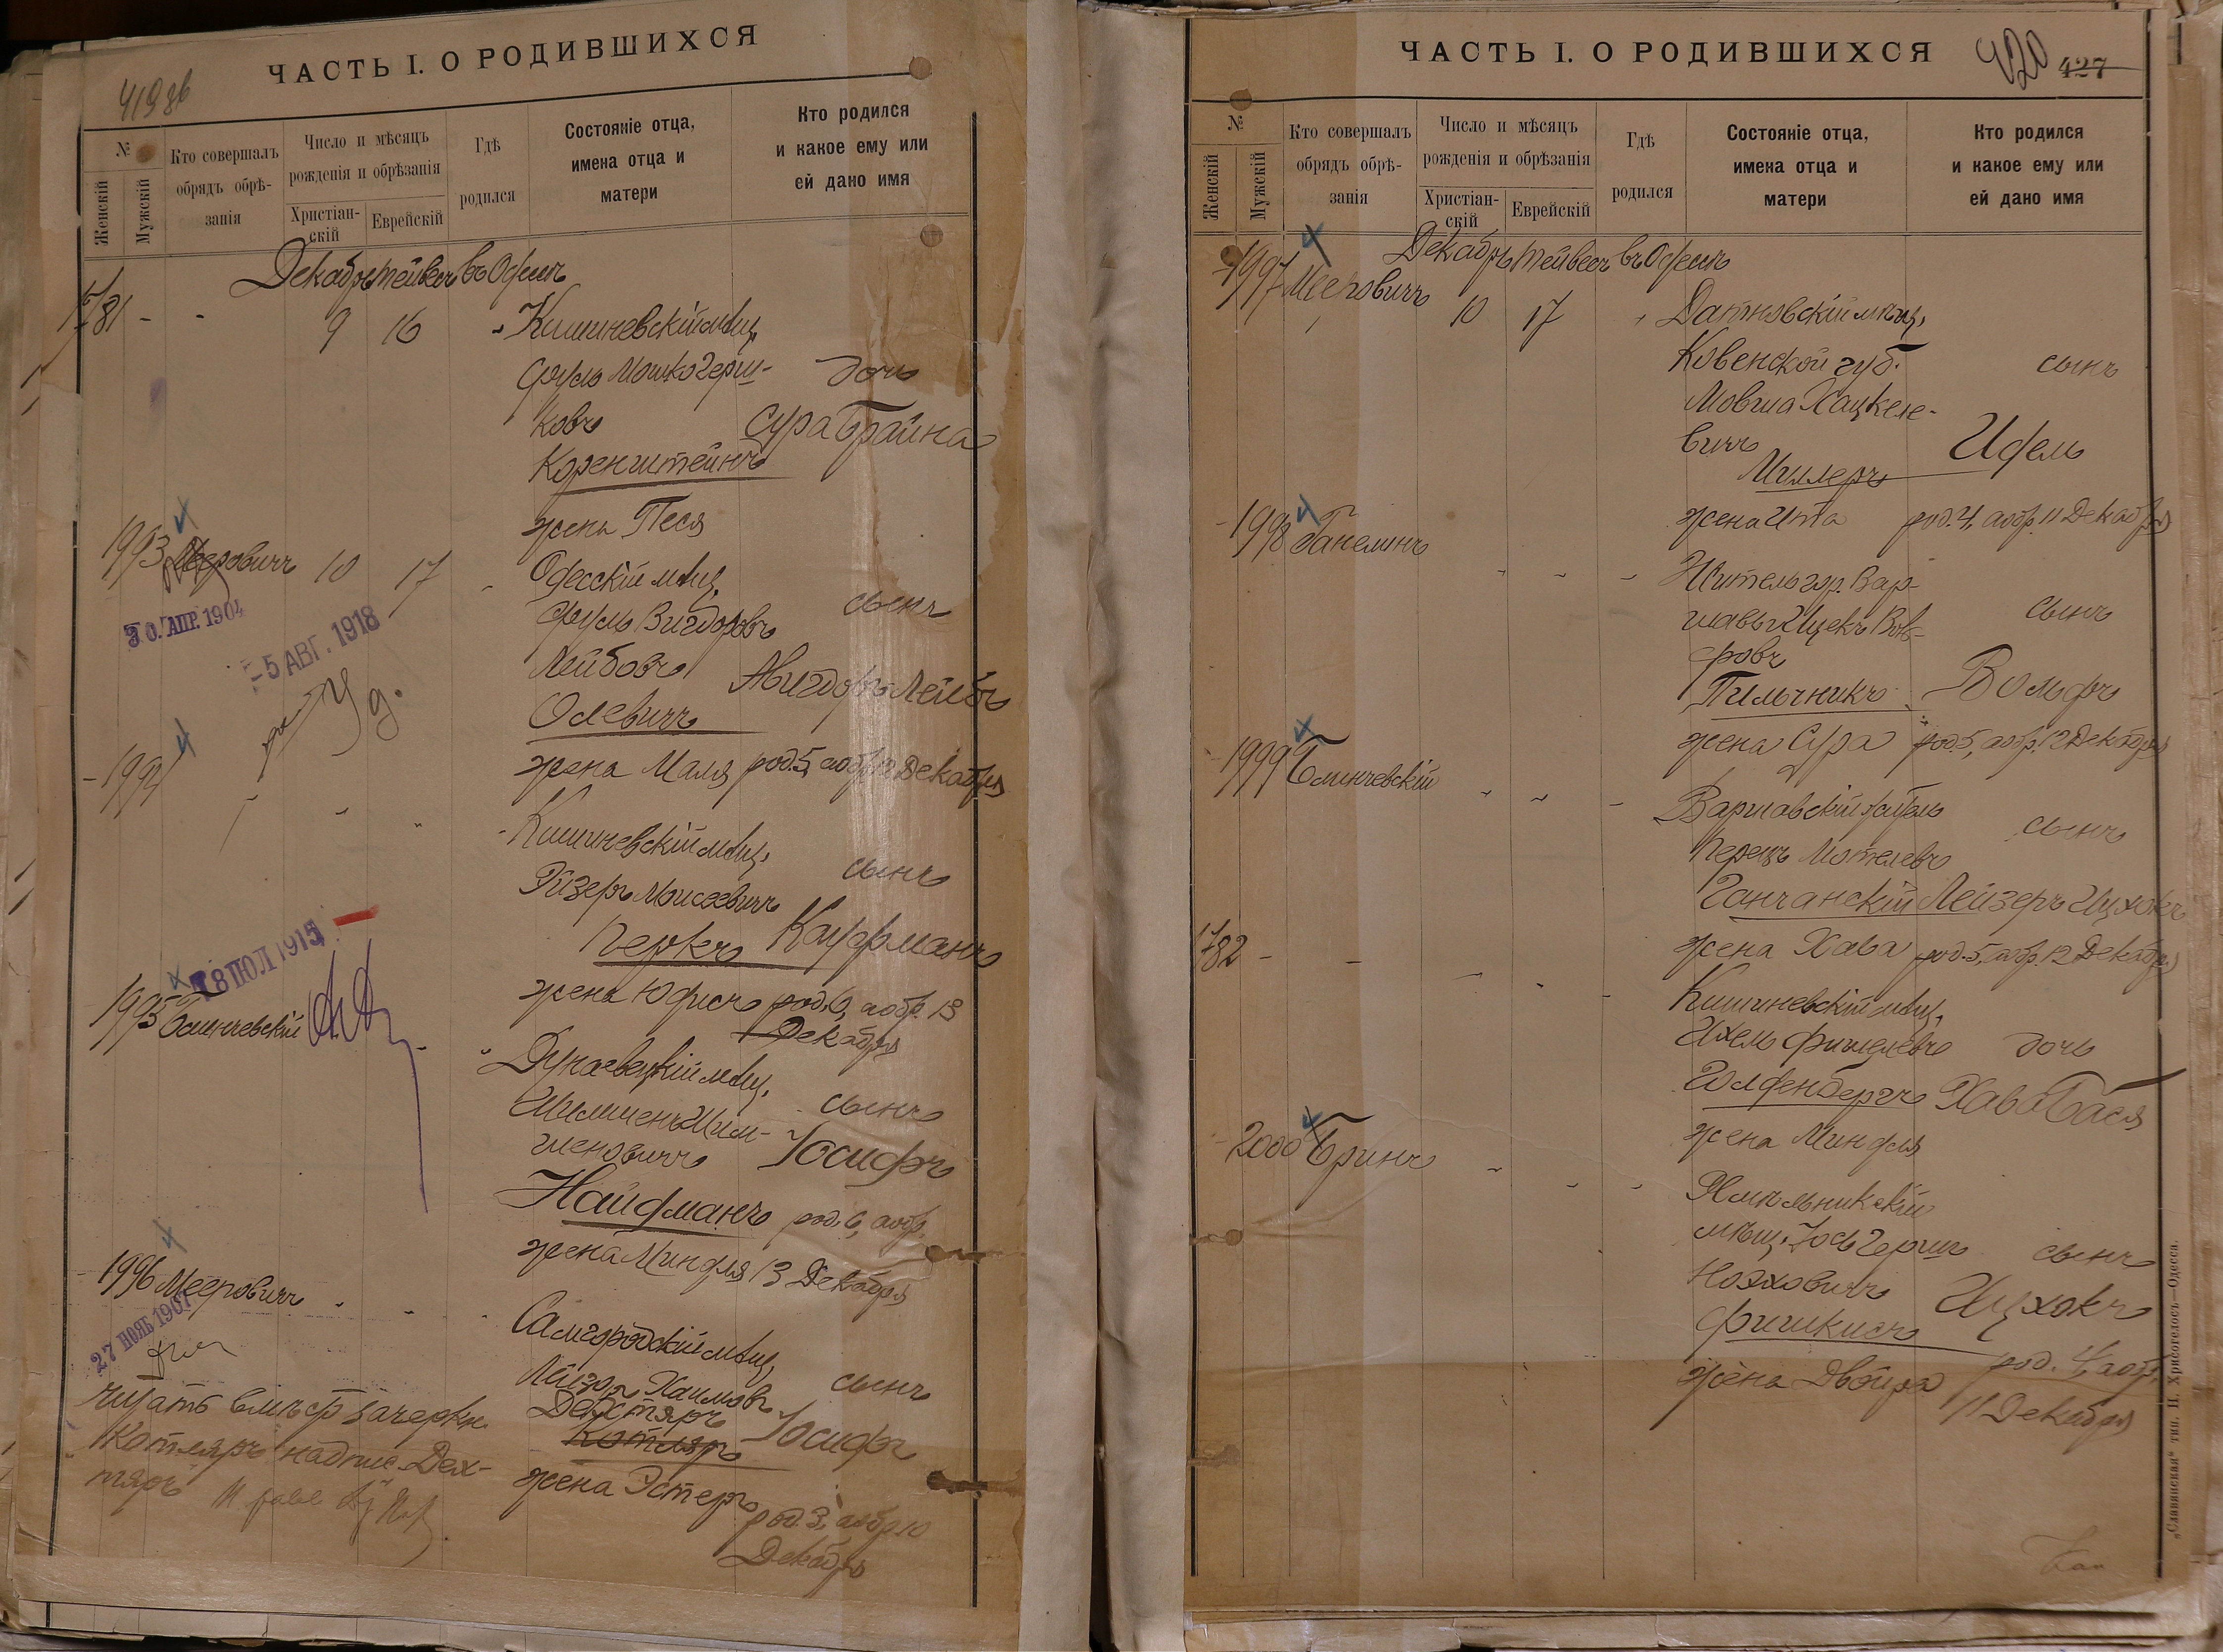 ЧАСТЬ I. О РОДИВШИХСЯ
419 об
№
Женскій
Мужскій
Кто совершалъ
обрядъ обрѣ-
занія
Число и мѣсяцъ
рожденія и обрѣзанія
Христіан-
скій
Еврейскій
Гдѣ
родился
Состояніе отца,
имена отца и
матери
Кто родился
и какое ему или
ей дано имя
Декабрь Тейвесъ въ Одессѣ
1781 - - 9 16 Кишиневскій мѣщ.
Сруль Мошко Герш-
ковъ
Коренштейнъ
жена Песя
дочь
Сура Брайна
1993 Мееровичъ 10 17 Одесскій мѣщ.
Сруль Вигдоровъ
Лейбовъ
Олевичъ
жена Маля
сынъ
Авигдоръ Лейбъ
род. 5, аобр. 12 Декабря
30 АПР. 1904
- 5 АВГ. 1918
1994 Кишиневскій мѣщ.
Эйзеръ Моисеевичъ
Перкъ
жена Юфисъ
сынъ
Кауфманъ
род. 6, аобр. 13
Декабря
18 ПОЛ 1915
1995 Блинчевскій
Дунаевецкій мѣщ.
Шмиленъ Шми-
леновичъ
Найфманъ
жена Миндля
сынъ
Іосифъ
род. 6, аобр.
13 Декабря
1996 Мееровичъ
27 НОЯБ 1907
Самгородскій мѣщ.
Лейзоръ Хаимовъ
Дехтяръ
Котляръ
жена Эстеръ
сынъ
Іосифъ
род. 3, аобр 10
Декабря
читать вмѣст. зачеркн.
"Котляръ" надпис. "Дех-
тяръ"
ЧАСТЬ I. О РОДИВШИХСЯ
420 427
№
Женскій
Мужскій
Кто совершалъ
обрядъ обрѣ-
занія
Число и мѣсяцъ
рожденія и обрѣзанія
Христіан-
скій
Еврейскій
Гдѣ
родился
Состояніе отца,
имена отца и
матери
Кто родился
и какое ему или
ей дано имя
Декабрь Тейвесъ въ Одессѣ
1997 Мееровичъ 10 17 Датновскій мѣщ.
Ковенской губ.
Мовша Хацкеле-
вичъ
Миллеръ
жена Ита
сынъ
Идель
род. 4, аобр. 11 Декабря
1998 Ганелинъ
Житель гор. Вар-
шавы Ицекъ Воль-
фовъ
Пильчникъ
жена Сура
сынъ
Вольфъ
род. 5, аобр. 12 Декабря
1999 Блинчевскій
Варшавскій житель
Перецъ Мотелевъ
Ганчанскій
жена Хава
сынъ
Лейзеръ Ицхокъ
род. 5, аобр. 12 Декабря
1782 - -
Кишиневскій мѣщ.
Ихель Фишелевъ
Голденбергъ
жена Миндля
дочь
Хава Бася
2000 Бринъ
Хмѣльникскій
мѣщ. Іось Гершъ
Ноэховичъ
Фишкисъ
жена Двойра
сынъ
Ицхокъ
род. 4, аобр.
11 Декабря
„Славянская“ тип. Н. Хрисогелосъ—Одесса.